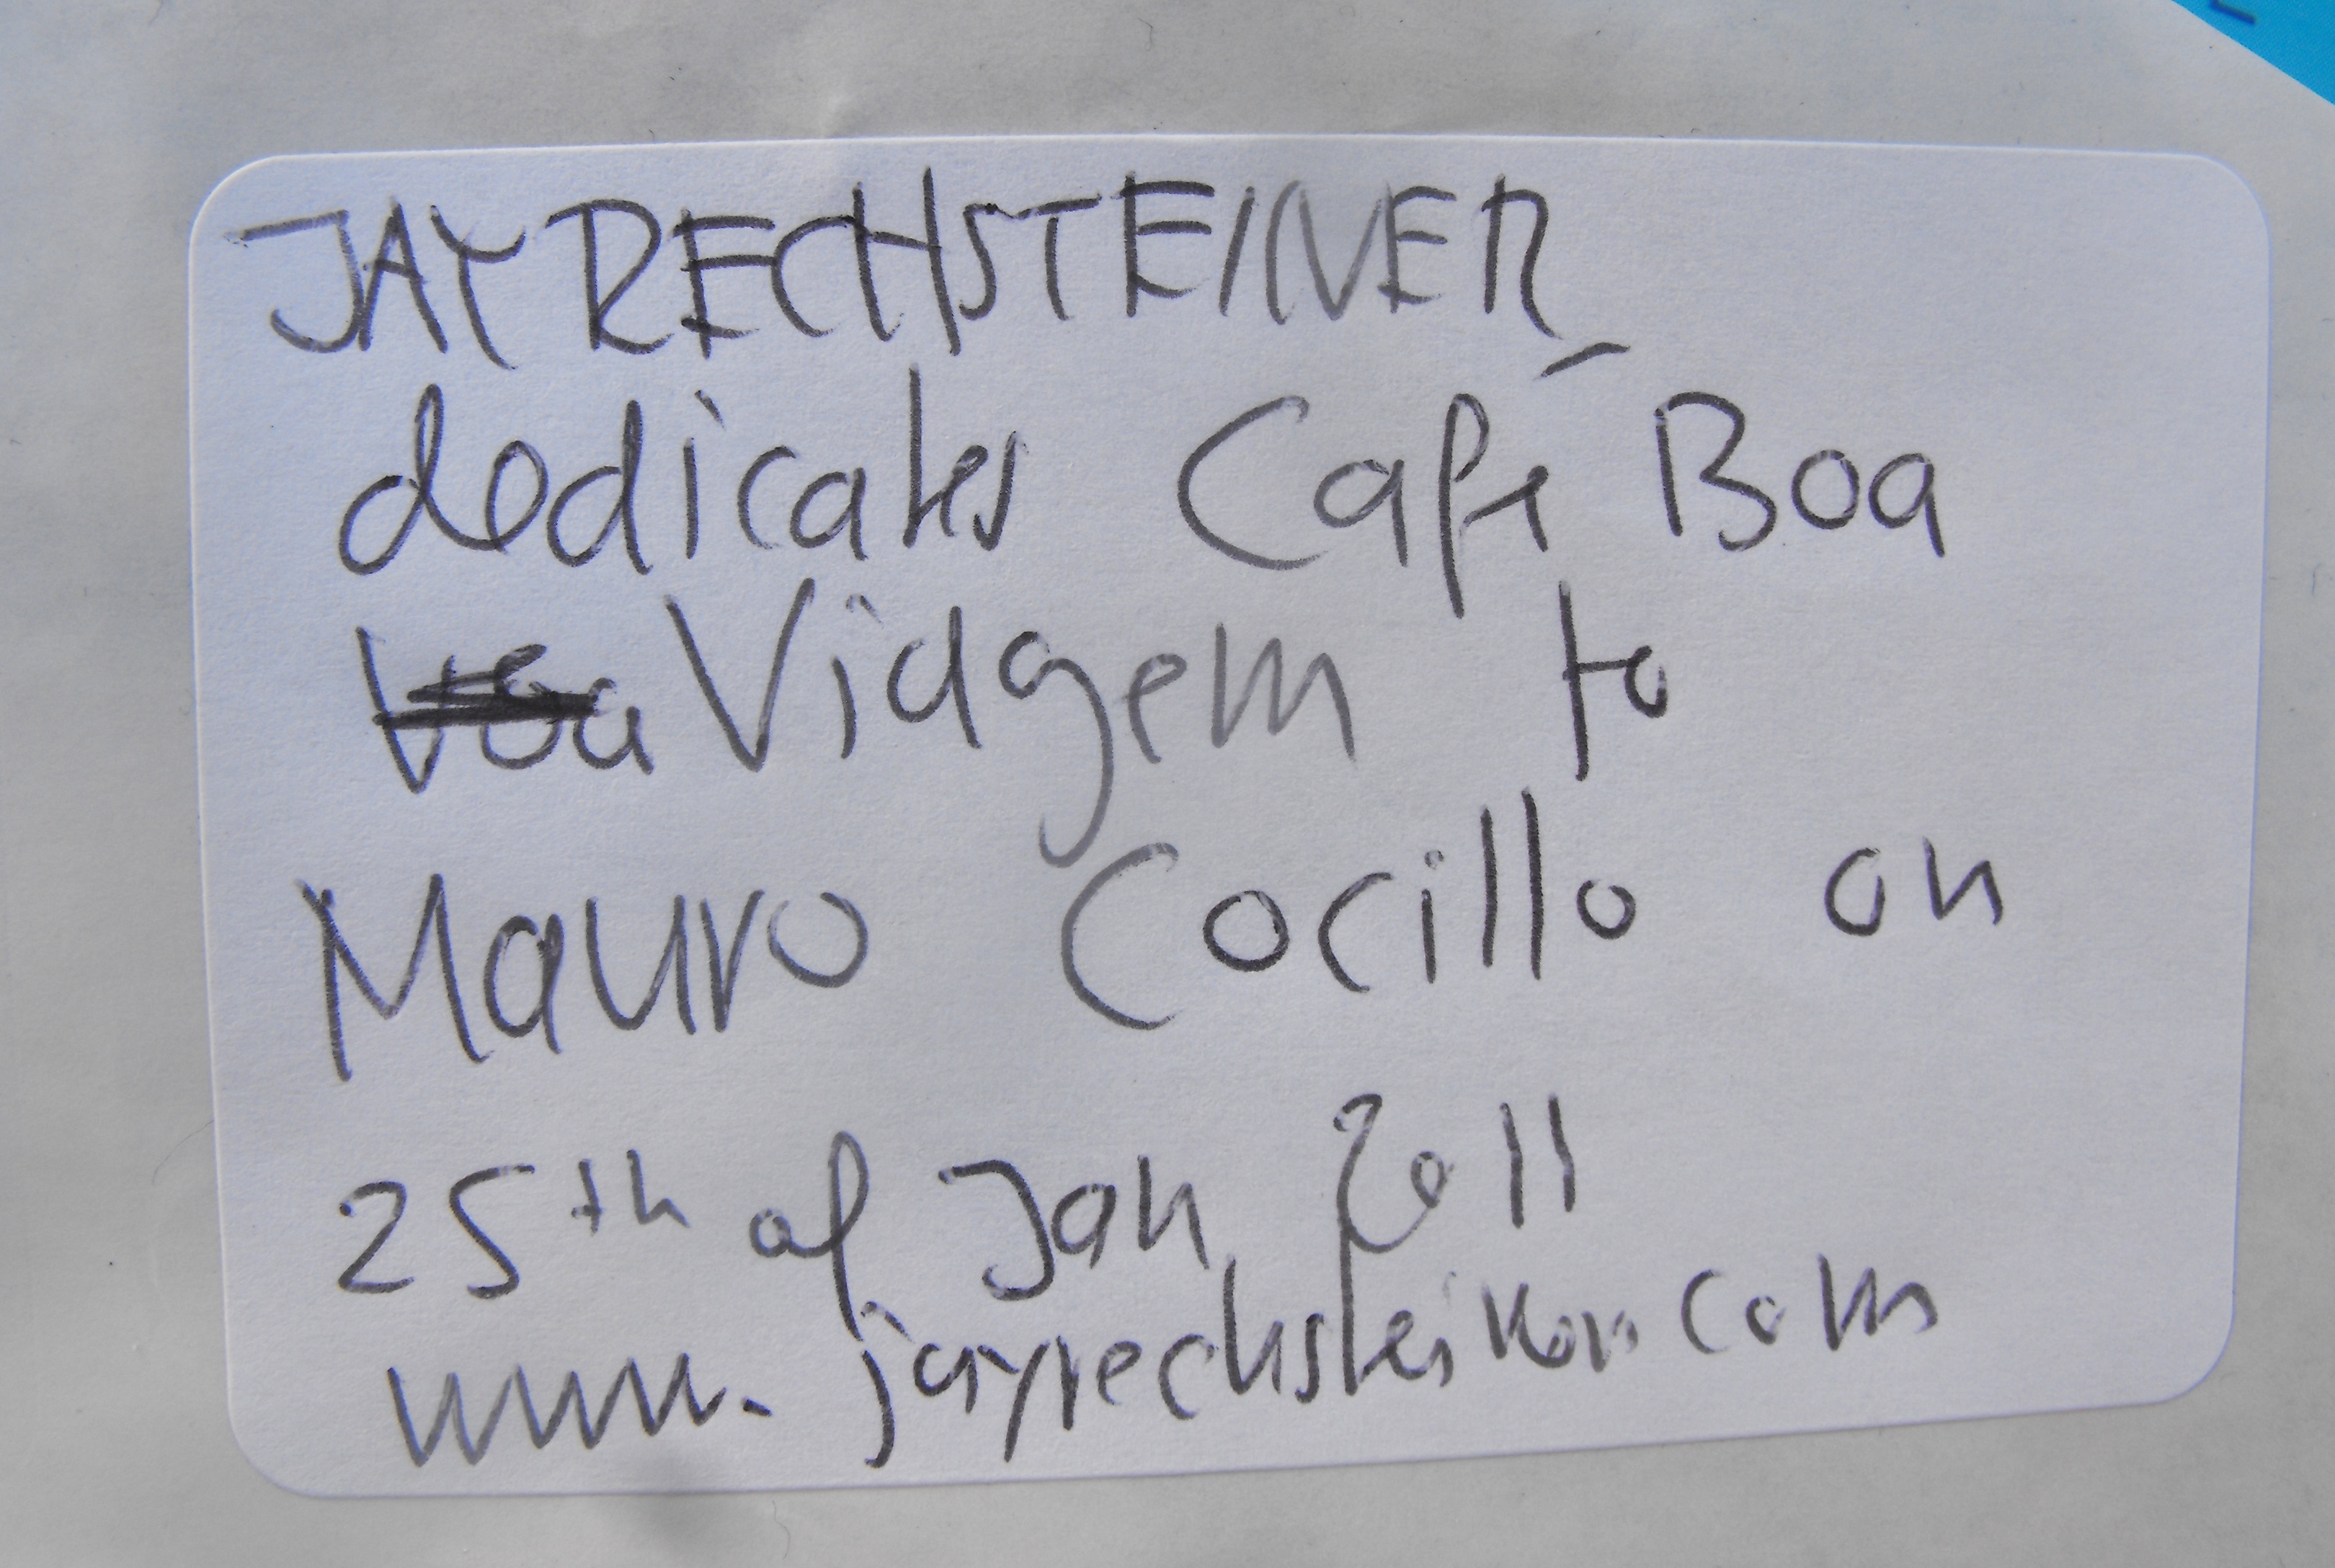 JAY RECHSTEINER
dedicates Café Boa
Viagem to
Mauro Cocillo on
25th of Jan 2011
www.jayrechsteiner.com